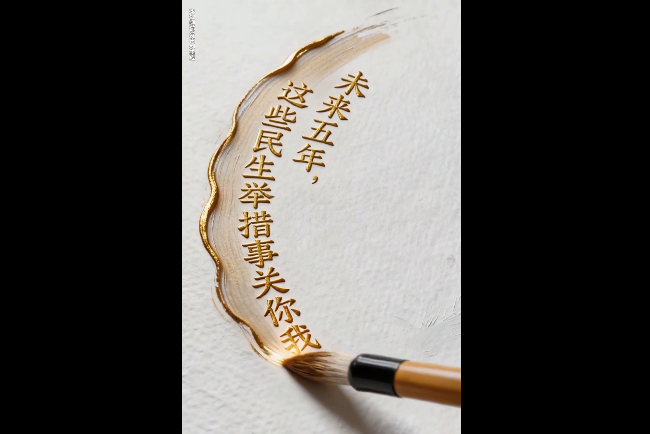 未来五年，
这些民生举措事关你我